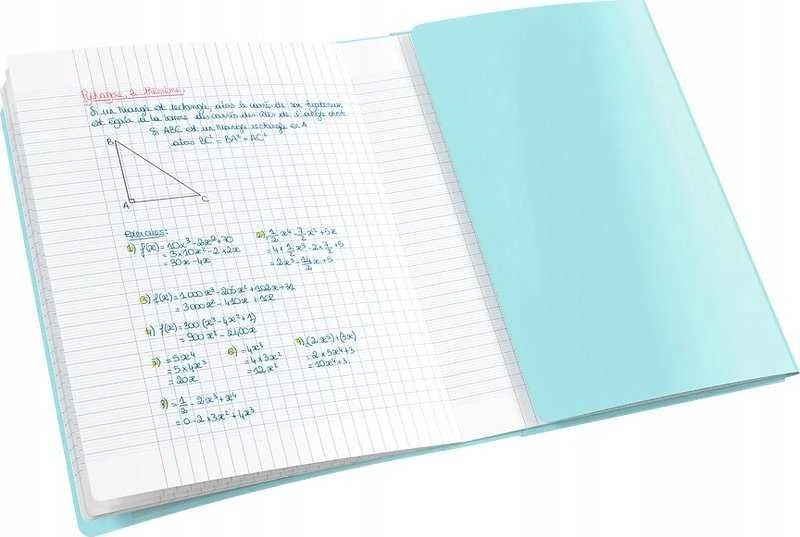 Pythagore, le théorème:
Si un triangle est rectangle, alors le carré de son hypoténuse
est égale à la somme des carrés des côtés de l'angle droit
Si ABC est un triangle rectangle en A
alors BC² = BA² + AC²
B
A
C
exercices:
1) f(x) = 10x³ - 2x² + 70
= 3 × 10x² - 2 × 2x
= 30x - 4x
2) 1/2 x⁴ - 7/2 x² + 5x
= 4 × 1/2 x³ - 2 × 7/2 + 5
= 2x³ - 14/2 x + 5
3) f(x) = 1000x³ - 205x² + 102x + 31
= 3000x² - 410x + 102
4) f(x) = 300 (x³ - 4x² + 1)
= 900x² - 2400x
5) = 5x⁴
= 5 × 4x³
= 20x
6) = 4x³
= 4 × 3x²
= 12x²
7) (2x⁵) + (3x)
= 2 × 5x⁴ + 3
= 10x⁴ + 3
8) = 1/2 - 2x³ + x⁴
= 0 - 2 × 3x² + 4x³